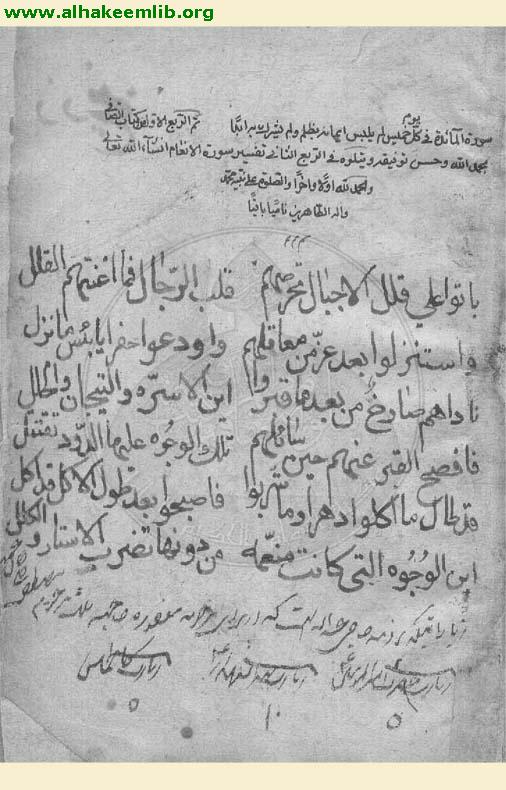 www.alhakeemlib.org
يوم
سورة المائدة في كل خميس لم يلبس ايمانه بظلم ولم يشرك به ابدا تم الربع الاول من كتاب الصافي
بحمد الله وحسن توفيقه ويتلوه في الربع الثاني تفسير سورة الانعام انشاء الله تعالى
والحمد لله اولا واخرا والصلوة على نبيه محمد
واله الطاهرين
باتوا على قلل الاجبال تحرصهم قلب الرجال فما اغنتهم القلل
واستنزلوا بعد عز من معاقلهم واودعوا حفرا يا بئس ما نزل
ناداهم صارخ من بعد ما قبروا اين الاسره والتيجان والحلل
فافصح القبر عنهم حين سائلهم تلك الوجوه عليها الدود تقتتل
قد طال ما اكلوا دهرا وما شربوا فاصبحوا بعد طول الاكل قد اكل
اين الوجوه التي كانت منعمه من دونها تضرب الاستار والكلل
زيارت زيارت زيارت
٥ ١٠ ٥